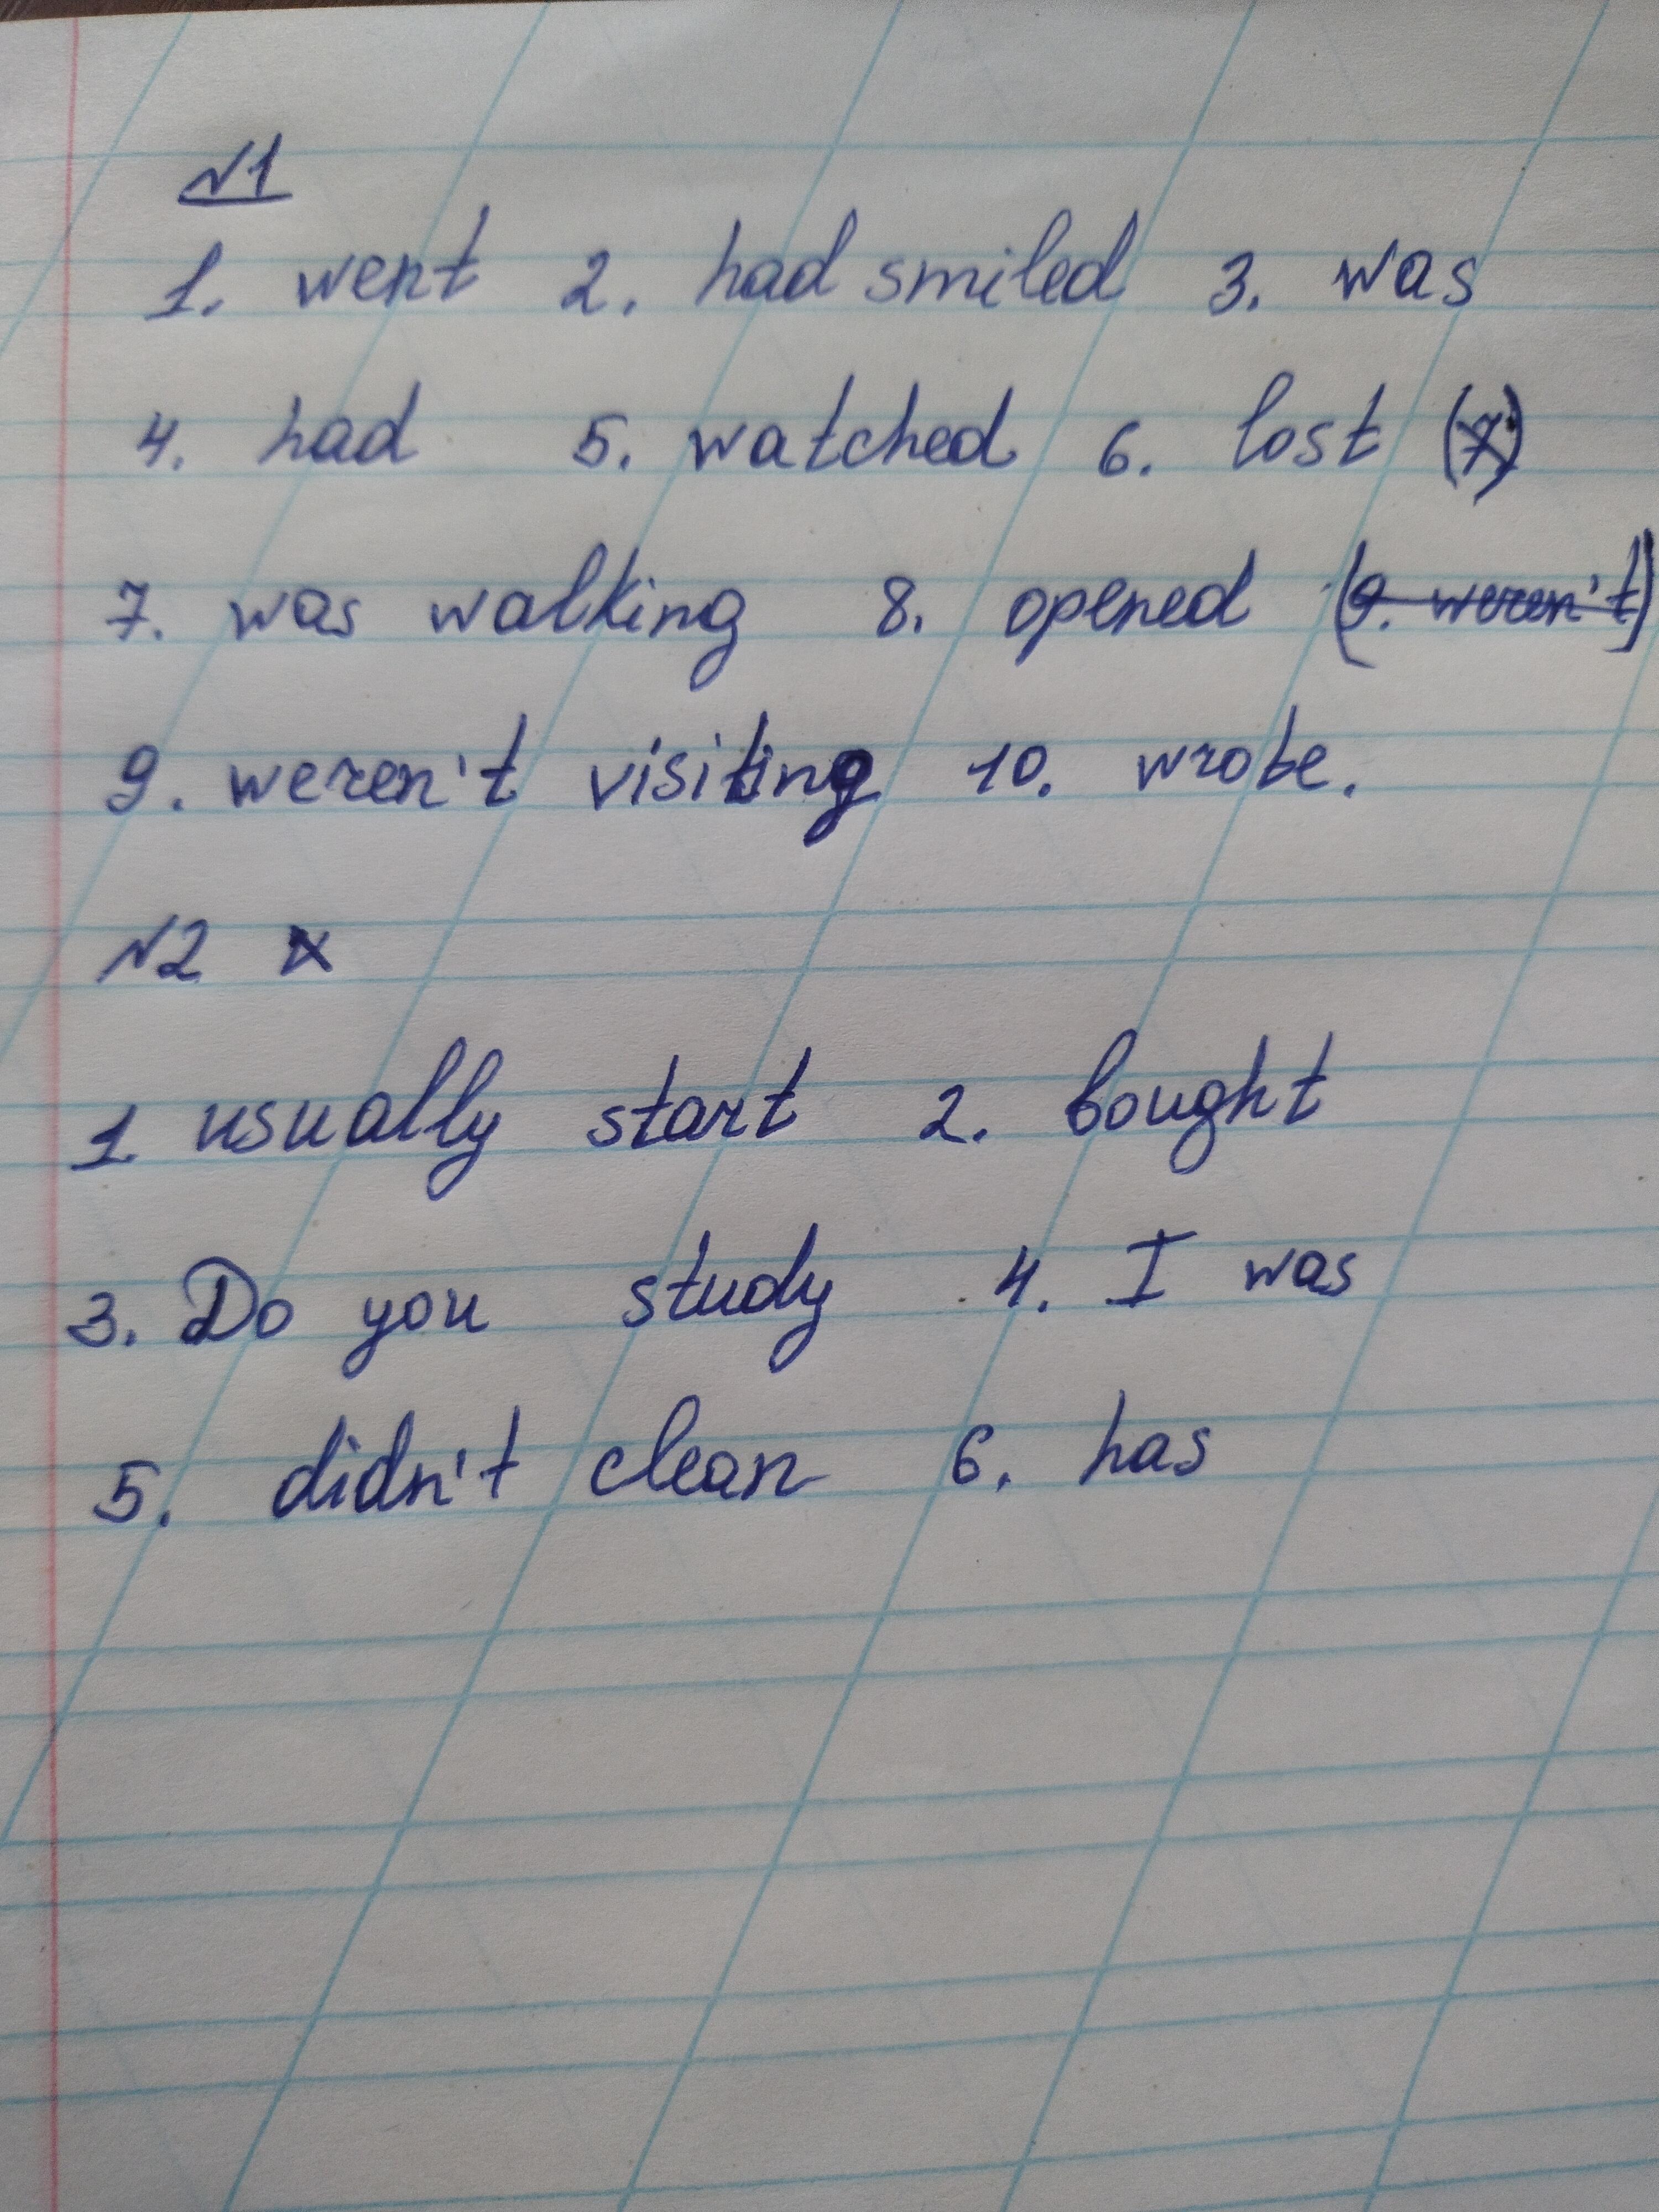 №1
1. went 2. had smiled 3. was
4. had 5. watched 6. lost (7)
7. was walking 8. opened (9. weren't)
9. weren't visiting 10. wrote.
№2
1 usually start 2. bought
3. Do you study 4. I was
5. didn't clean 6. has